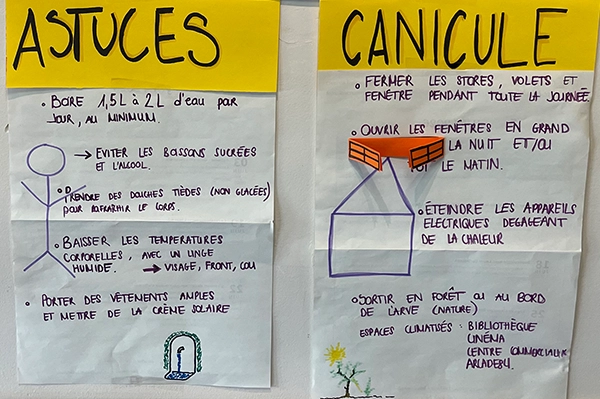 ASTUCES
• BOIRE 1,5L à 2L d'eau par
JOUR, AU MINIMUM.
→ EVITER LES BOISSONS SUCRÉES
ET L'ALCOOL.
• PRENDRE DES DOUCHES TIÈDES (NON GLACÉES)
POUR RAFRAÎCHIR LE CORPS.
• BAISSER LES TEMPÉRATURES
CORPORELLES, AVEC UN LINGE
HUMIDE. → VISAGE, FRONT, COU
• PORTER DES VÊTEMENTS AMPLES
ET METTRE DE LA CRÈME SOLAIRE
CANICULE
• FERMER LES STORES, VOLETS ET
FENÊTRE PENDANT TOUTE LA JOURNÉE.
• OUVRIR LES FENÊTRES EN GRAND
LA NUIT ET/OU
LE MATIN.
• ÉTEINDRE LES APPAREILS
ELECTRIQUES DÉGAGEANT
DE LA CHALEUR
• SORTIR EN FORÊT OU AU BORD
DE L'ARVE (NATURE)
ESPACES CLIMATISÉS : BIBLIOTHÈQUE
CINÉMA
CENTRE COMMERCIAL